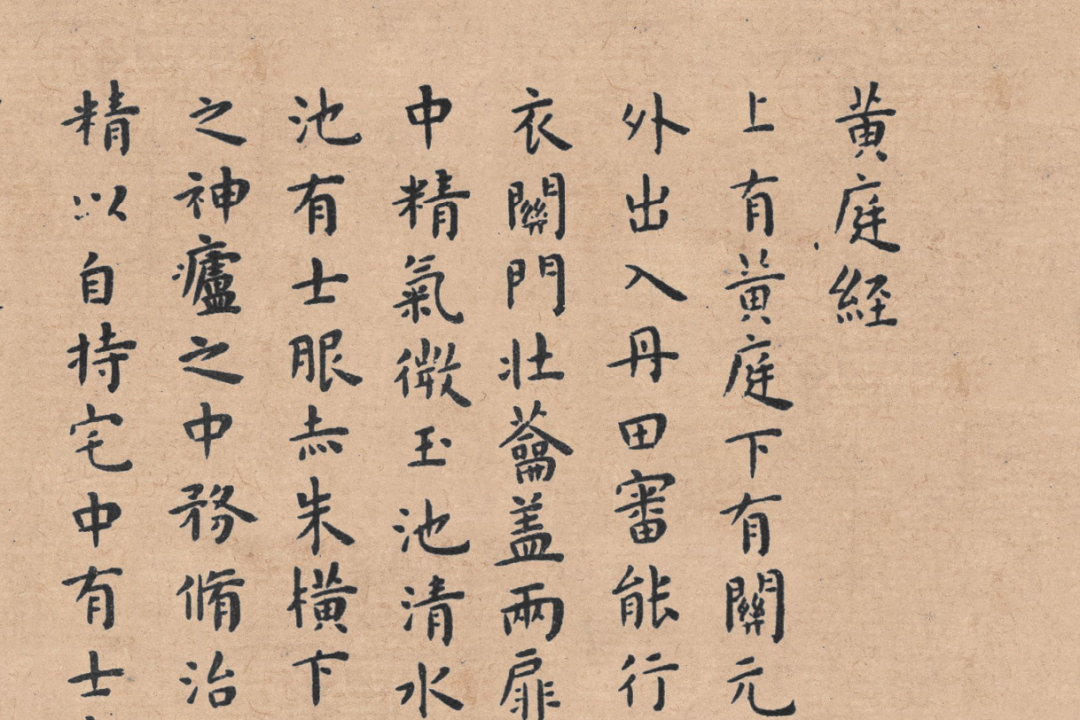 黃庭経
上有黃庭下有關元
外出入丹田審能行
衣關門壯蘥盖兩扉
中精氣微玉池清水
池有士服赤朱橫下
之神廬之中務脩治
精以自持宅中有士